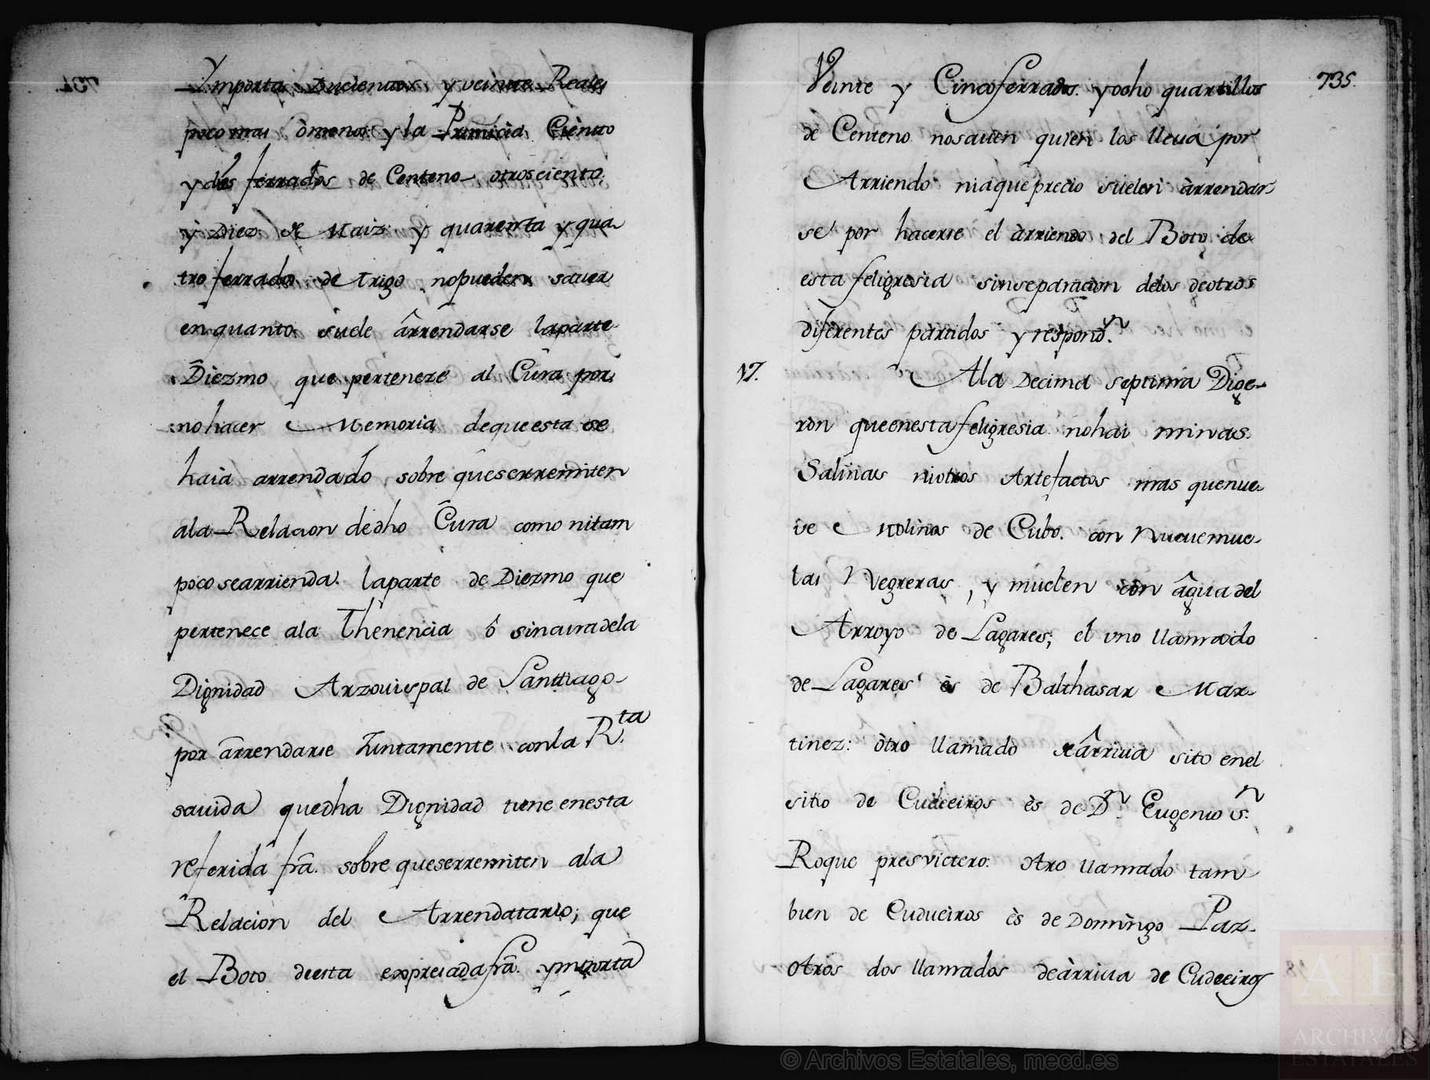 Ymporta Ducientos y veinte Reales
poco mas ò menos y la Primicia Ciento
y dos ferrados de Centeno otros ciento
y Diez de Maiz y quarenta y qua
tro ferrados de trigo no pueden saver
en quanto suele àrrendarse la parte
Diezmo que perteneze al Cura por
no hacer Memoria de que esta se
haia arrendado sobre que se rremiten
a la Relacion de dho Cura como ni tam
poco se arrienda la parte de Diezmo que
pertenece a la Thenencia ô sinaura de la
Dignidad Arzovispal de Santtiago
por arrendarse Juntamente con la R.ta
sauida que dha Dignidad tiene en esta
referida frâ. sobre que se rremiten a la
Relacion del Arrendatario; que
el Boto de esta expresada frâ. ymporta
735.
Veinte y Cinco ferrados y ocho quartillos
de Centeno no saven quien los lleua por
Arriendo ni a que precio suelen àrrendar
se por hacerse el àrriendo del Boto de
esta feligresia sin separacion de los de otros
diferentes partidos y respond.n
17. A la Decima septima Dige-
ron que en esta feligresia no hai minas
Salinas ni otros Artefactos mas que nue-
ve Molinos de Cubo con nueve mue-
las Negreras, y muelen con âgua del
Arroyo de Lagares; el uno llamado
de Lagares ès de Balthasar Mar-
tinez: òtro llamado de ârriua sito en el
sitio de Cudeeiros ès de D.n Eugenio S.n
Roque presvictero: otro llamado tam
bien de Cudueiros ès de Domingo Paz-
otros dos llamados de àrriua de Cudeeiros
© Archivos Estatales, mecd.es
AE
ARCHIVOS
ESTATALES